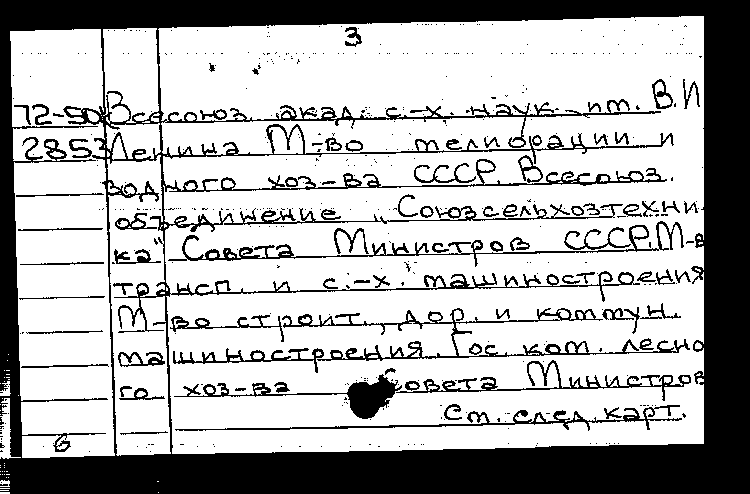 3
72-50 Всесоюз. акад. с.-х. наук им. В.И
2853 Ленина М-во мелиорации и
водного хоз-ва СССР. Всесоюз.
объединение „Союзсельхозтехни-
ка" Совета Министров СССР. М-в
трансп. и с.-х. машиностроения
М-во строит., дор. и коммун.
машиностроения. Гос. ком. лесно
го хоз-ва Совета Министров
См. след. карт.
6